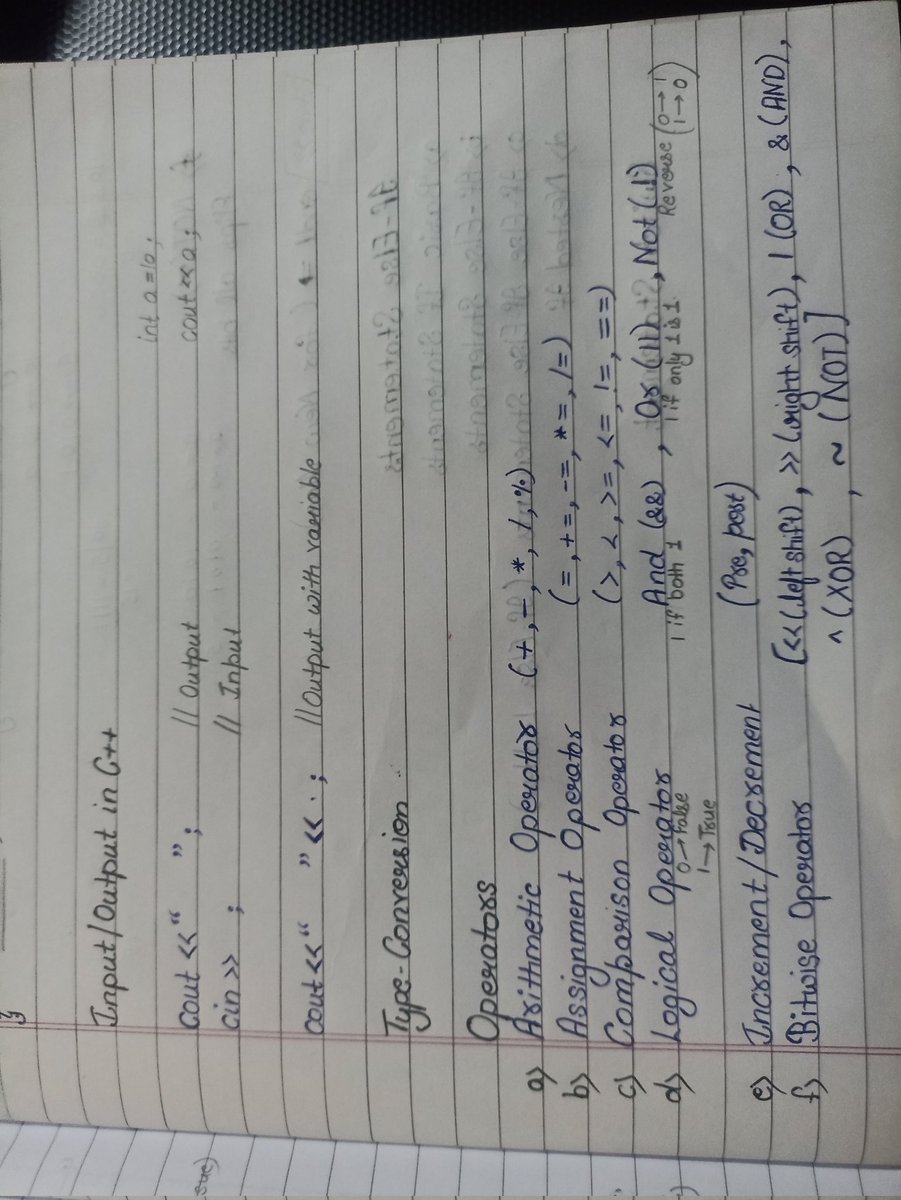 int a = 10;
Input/Output in C++
cout << “ ” ; // Output cout << a ;
cin >> ; // Input
cout << “ ” << · ; // Output with variable
Type-Conversion
Operators
a) Arithmetic Operator (+, -, *, /, %)
b) Assignment Operator (=, +=, -=, *=, /=)
c) Comparison Operator (>, <, >=, <=, !=, ==)
d) Logical Operator And (&&) , Or (||) , Not (!)
0 → False 1 if both 1 1 if only 1 is 1 Reverse (0 → 1
1 → True 1 → 0)
e) Increment/Decrement (Pre, post)
f) Bitwise Operator [<< (left shift), >> (right shift), | (OR), & (AND),
^ (XOR) , ~ (NOT)]